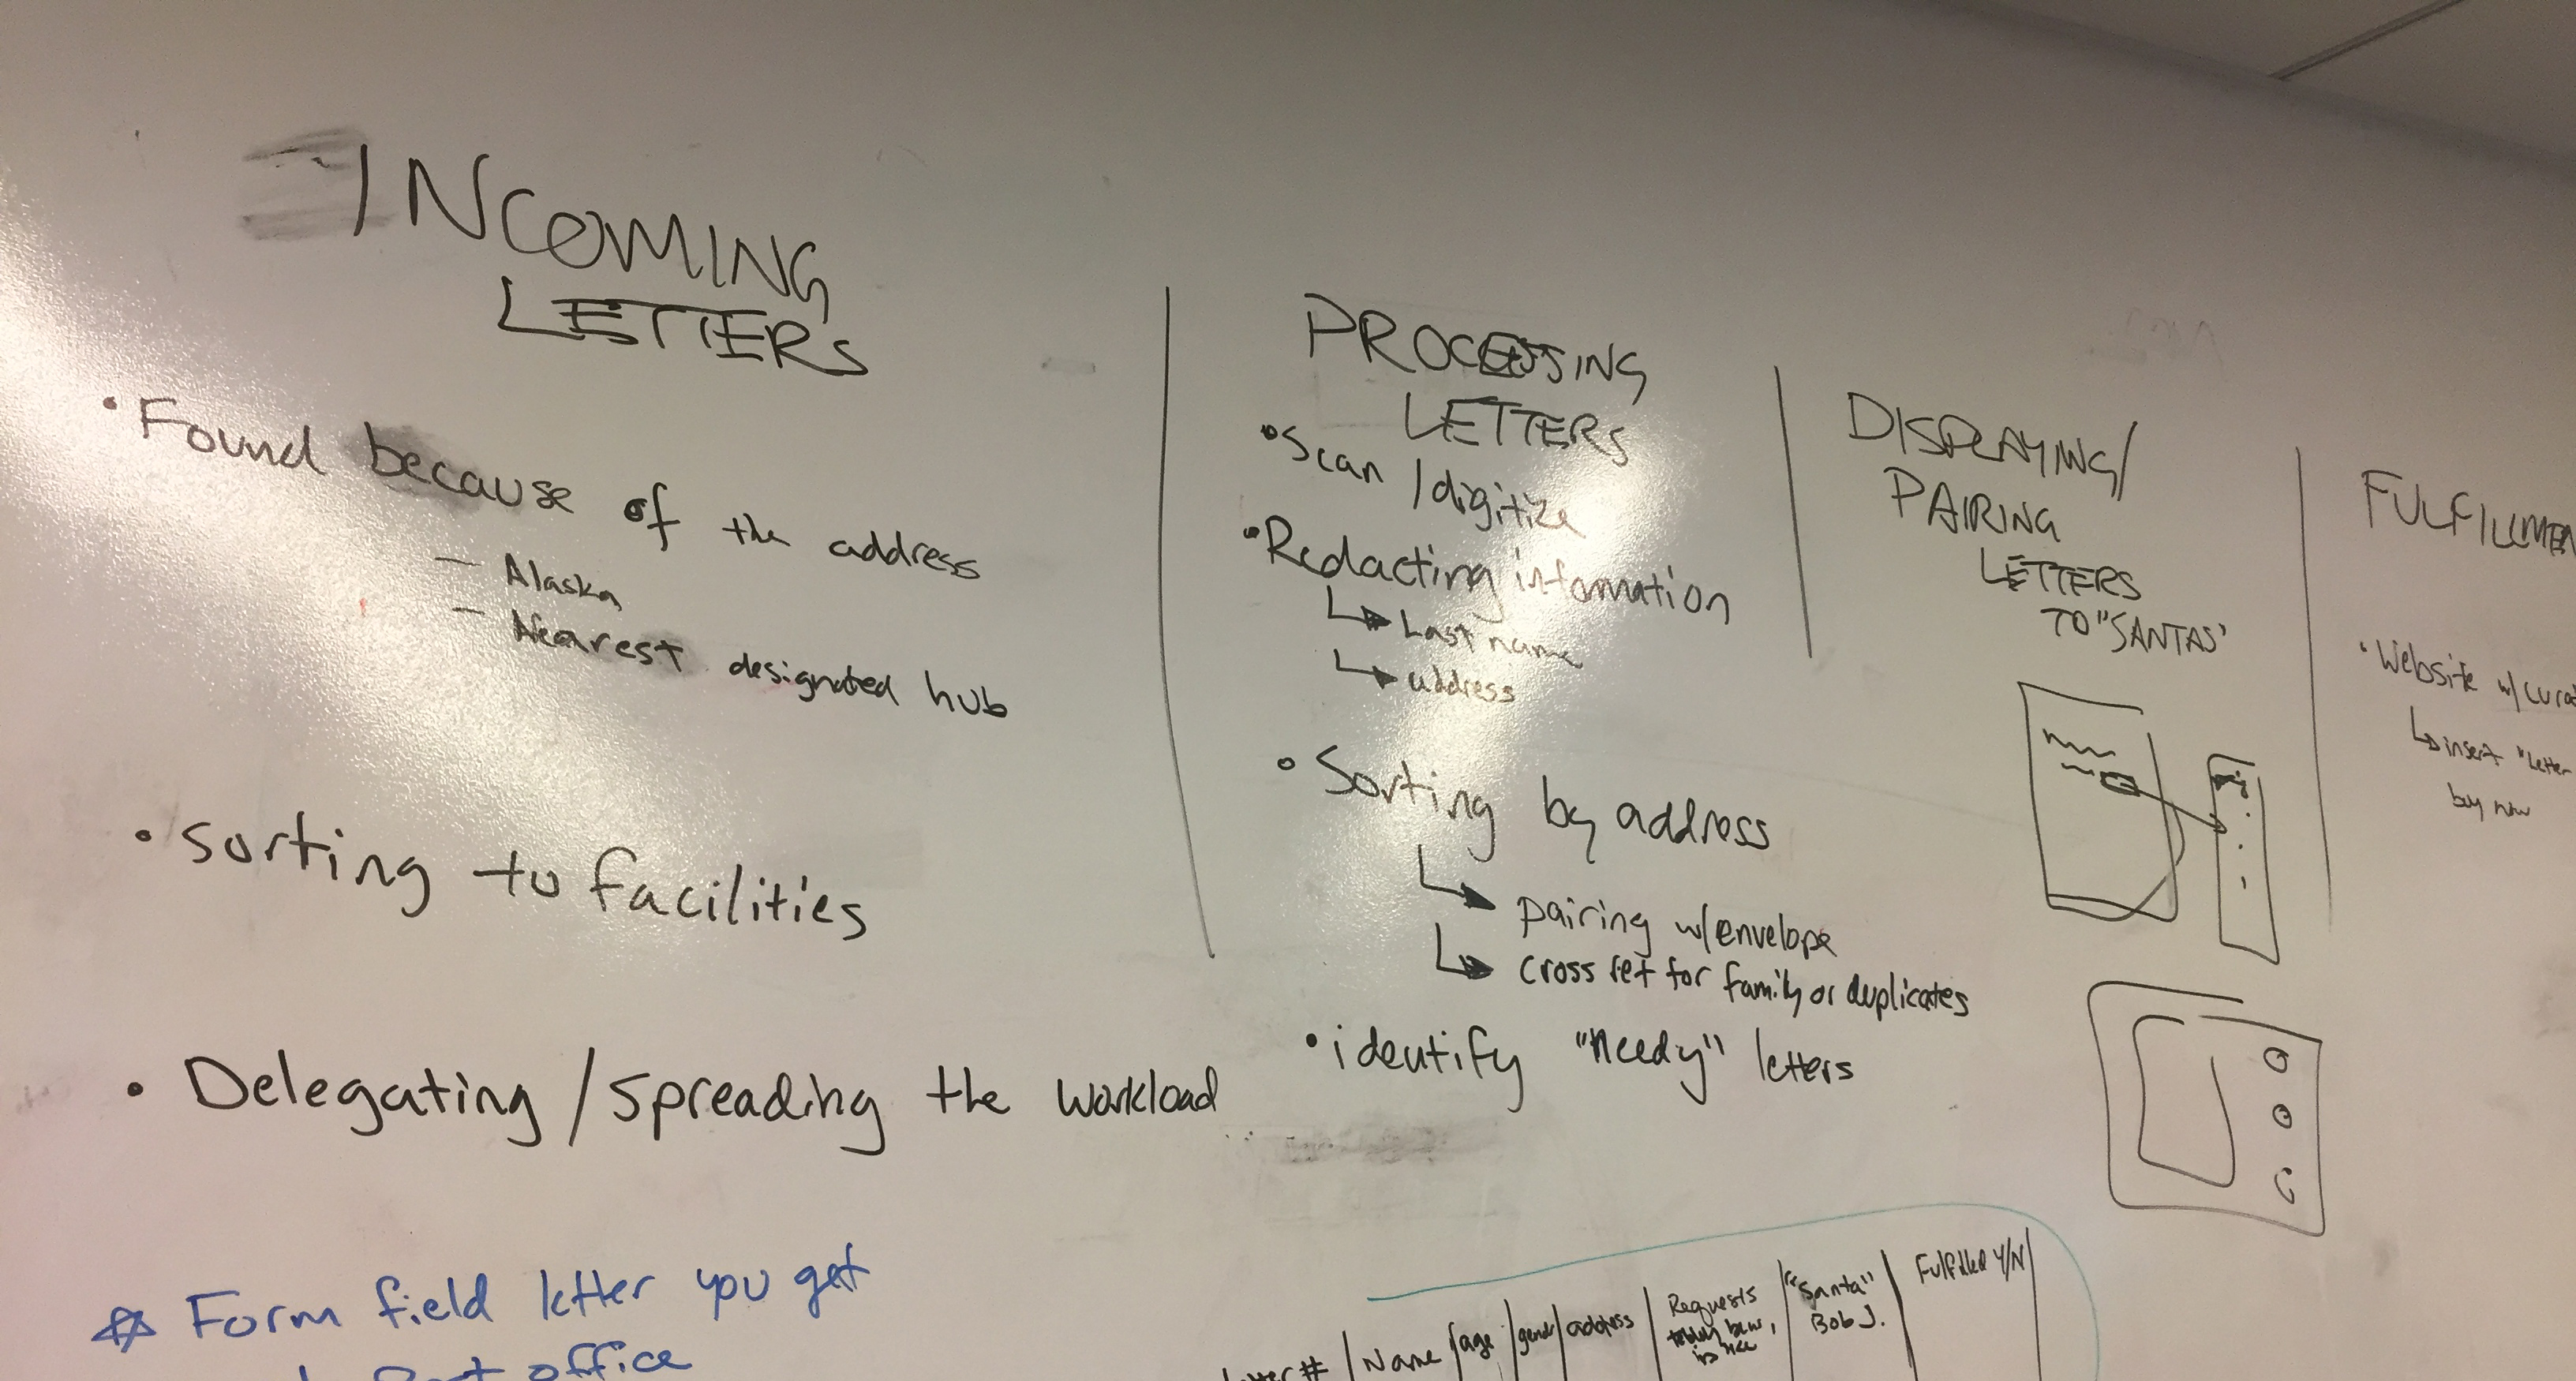 INCOMING
LETTERS
• Found because of the address
— Alaska
— Nearest designated hub
• Sorting to facilities
• Delegating / spreading the workload
☆ Form field letter you get
Post office
PROCESSING
LETTERS
• Scan / digitize
• Redacting information
↳ Last name
↳ address
• Sorting by address
↳ pairing w/ envelope
↳ cross ref for family or duplicates
• identify "needy" letters
DISPLAYING/
PAIRING
LETTERS
TO "SANTAS"
FULFILLMEN
• Website w/ curat
↳ insert "Letter
buy now
Letter # | Name | age | gender | address | Requests | "Santa" Bob J. | Fulfilled Y/N |